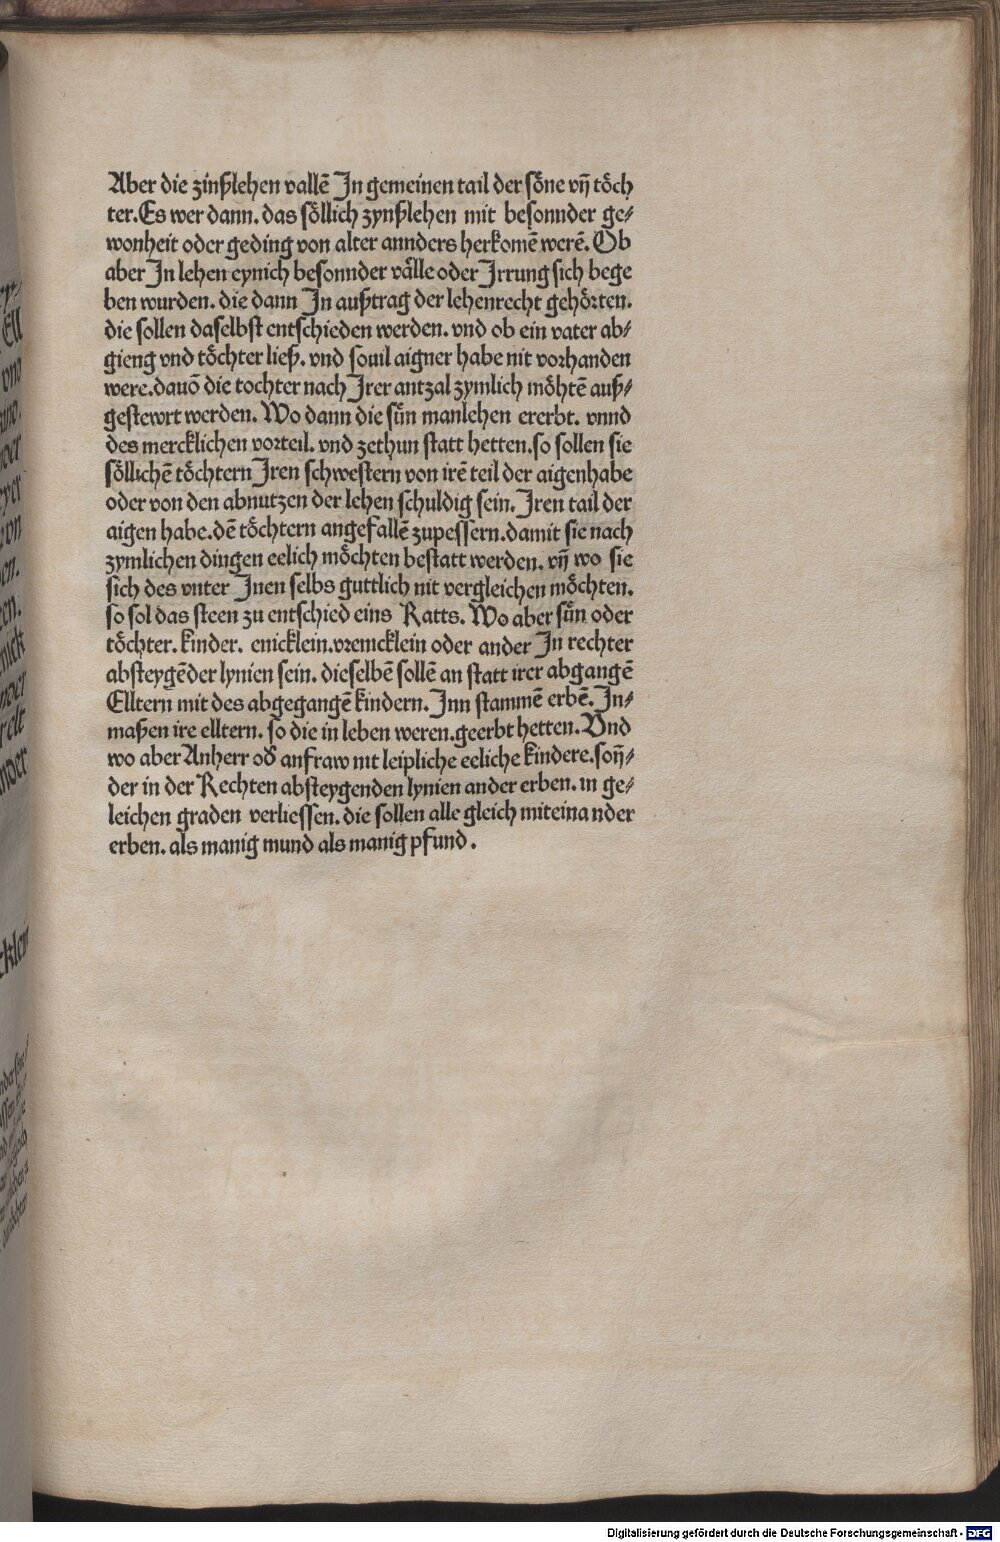 Aber die zinßlehen vallē In gemeinen tail der söne vñ töch
ter. Es wer dann. das söllich zynßlehen mit besonnder ge⸗
wonheit oder geding von alter annders herkomē werē. Ob
aber In lehen eynich besonnder välle oder Irrung sich bege
ben wurden. die dann In außtrag der lehenrecht gehörten.
die sollen daselbst entschieden werden. vnd ob ein vater ab⸗
gieng vnd töchter ließ. vnd souil aigner habe nit vorhanden
were. dauō die tochter nach Irer antzal zymlich möhtē auß⸗
gestewrt werden. Wo dann die sün manlehen ererbt. vnnd
des mercklichen vorteil. vnd zethun statt hetten. so sollen sie
söllichē töchtern Iren schwestern von irē teil der aigenhabe
oder von den abnutzen der lehen schuldig sein. Iren tail der
aigen habe. dē töchtern angefallē zupessern. damit sie nach
zymlichen dingen eelich möchten bestatt werden. vñ wo sie
sich des vnter Inen selbs guttlich nit vergleichen möchten.
so sol das steen zu entschied eins Ratts. Wo aber sün oder
töchter. kinder. enicklein. vrenicklein oder ander In rechter
absteygēder lynien sein. dieselbē sollē an statt irer abgangē
Elltern mit des abgegangē kindern. Inn stammē erbē. In⸗
maßen ire elltern. so die in leben weren. geerbt hetten. Vnd
wo aber Anherr oď anfraw nit leipliche eeliche kindere. soñ⸗
der in der Rechten absteygenden lynien ander erben. in ge⸗
leichen graden verliessen. die sollen alle gleich miteina nder
erben. als manig mund als manig pfund.
Digitalisierung gefördert durch die Deutsche Forschungsgemeinschaft - DFG